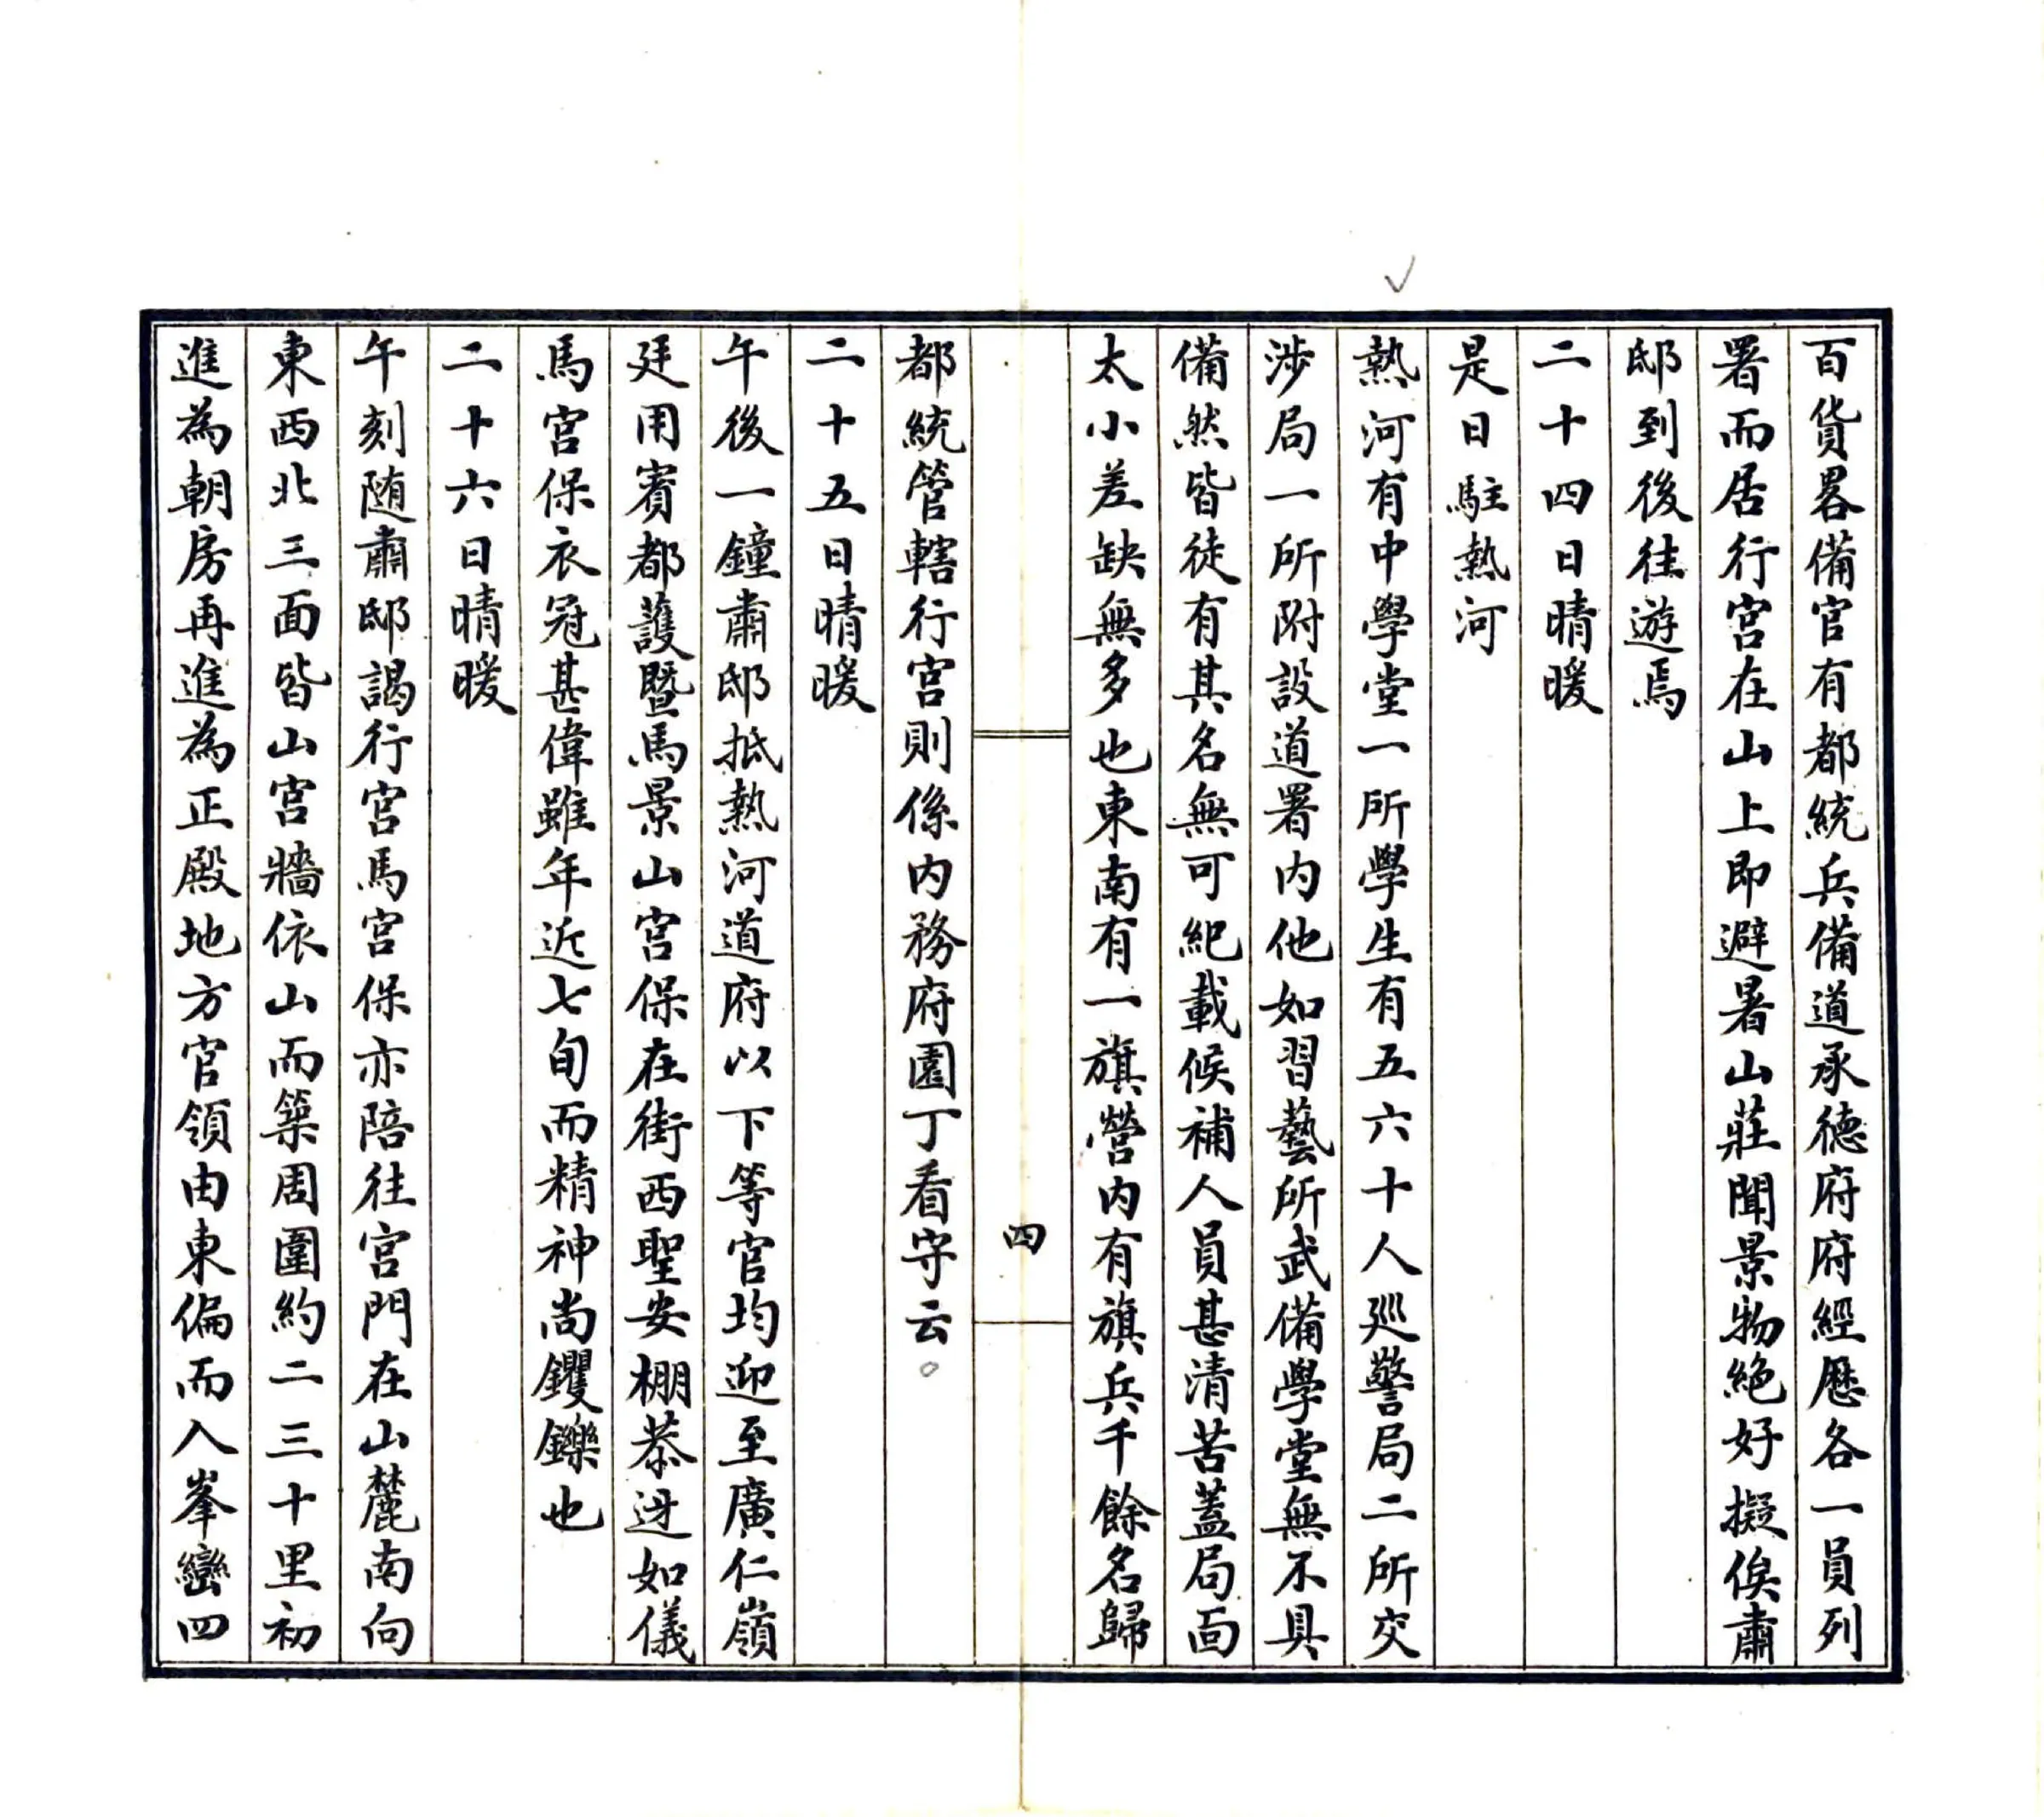 百貨畧備官有都統兵備道承德府府經歷各一員列
署而居行宮在山上即避暑山莊聞景物絶好擬俟肅
邸到後往遊焉
二十四日晴暖
是日駐熱河
熱河有中學堂一所學生有五六十人巡警局二所交
涉局一所附設道署内他如習藝所武備學堂無不具
備然皆徒有其名無可紀載候補人員甚清苦蓋局面
太小差缺無多也東南有一旗營内有旗兵千餘名歸
四
都統管轄行宮則係内務府園丁看守云。
二十五日晴暖
午後一鐘肅邸抵熱河道府以下等官均迎至廣仁嶺
廷用賓都護暨馬景山宮保在街西聖安棚恭迓如儀
馬宮保衣冠甚偉雖年近七旬而精神尚钁鑠也
二十六日晴暖
午刻随肅邸謁行宮馬宮保亦陪往宮門在山麓南向
東西北三面皆山宮牆依山而築周圍約二三十里初
進為朝房再進為正殿地方官領由東偏而入峯巒四